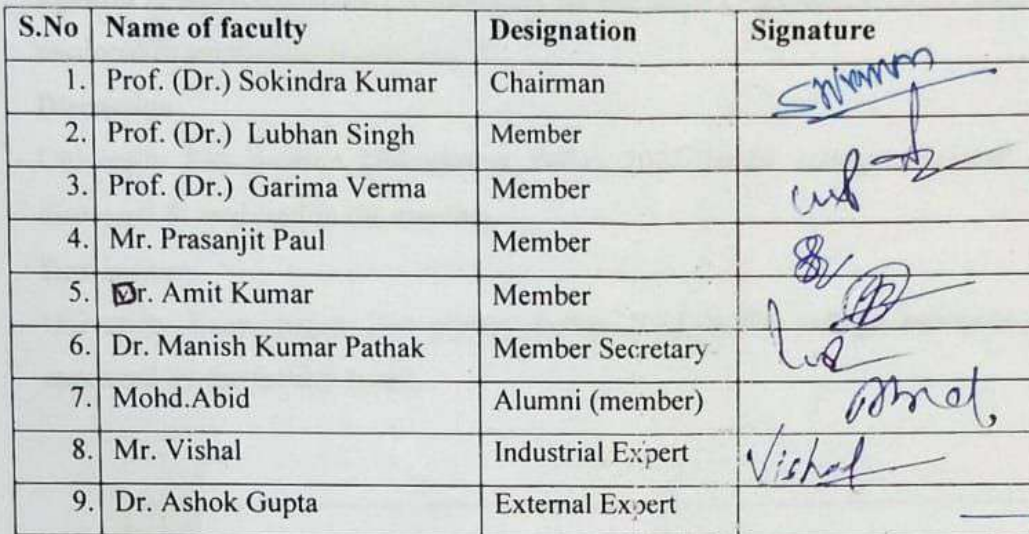 S.No Name of faculty Designation Signature
1. Prof. (Dr.) Sokindra Kumar Chairman
2. Prof. (Dr.) Lubhan Singh Member
3. Prof. (Dr.) Garima Verma Member
4. Mr. Prasanjit Paul Member
5. Dr. Amit Kumar Member
6. Dr. Manish Kumar Pathak Member Secretary
7. Mohd.Abid Alumni (member)
8. Mr. Vishal Industrial Expert Vishal
9. Dr. Ashok Gupta External Expert